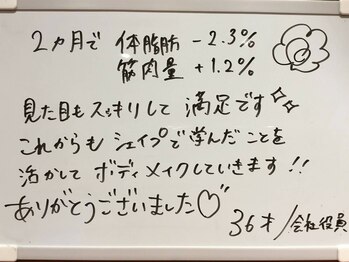 2ヵ月で 体脂肪 -2.3%
筋肉量 +1.2%
見た目もスッキリして満足です
これからも シェイプで学んだことを
活かして ボディメイクしていきます!!
ありがとうございました♡
36才/会社役員